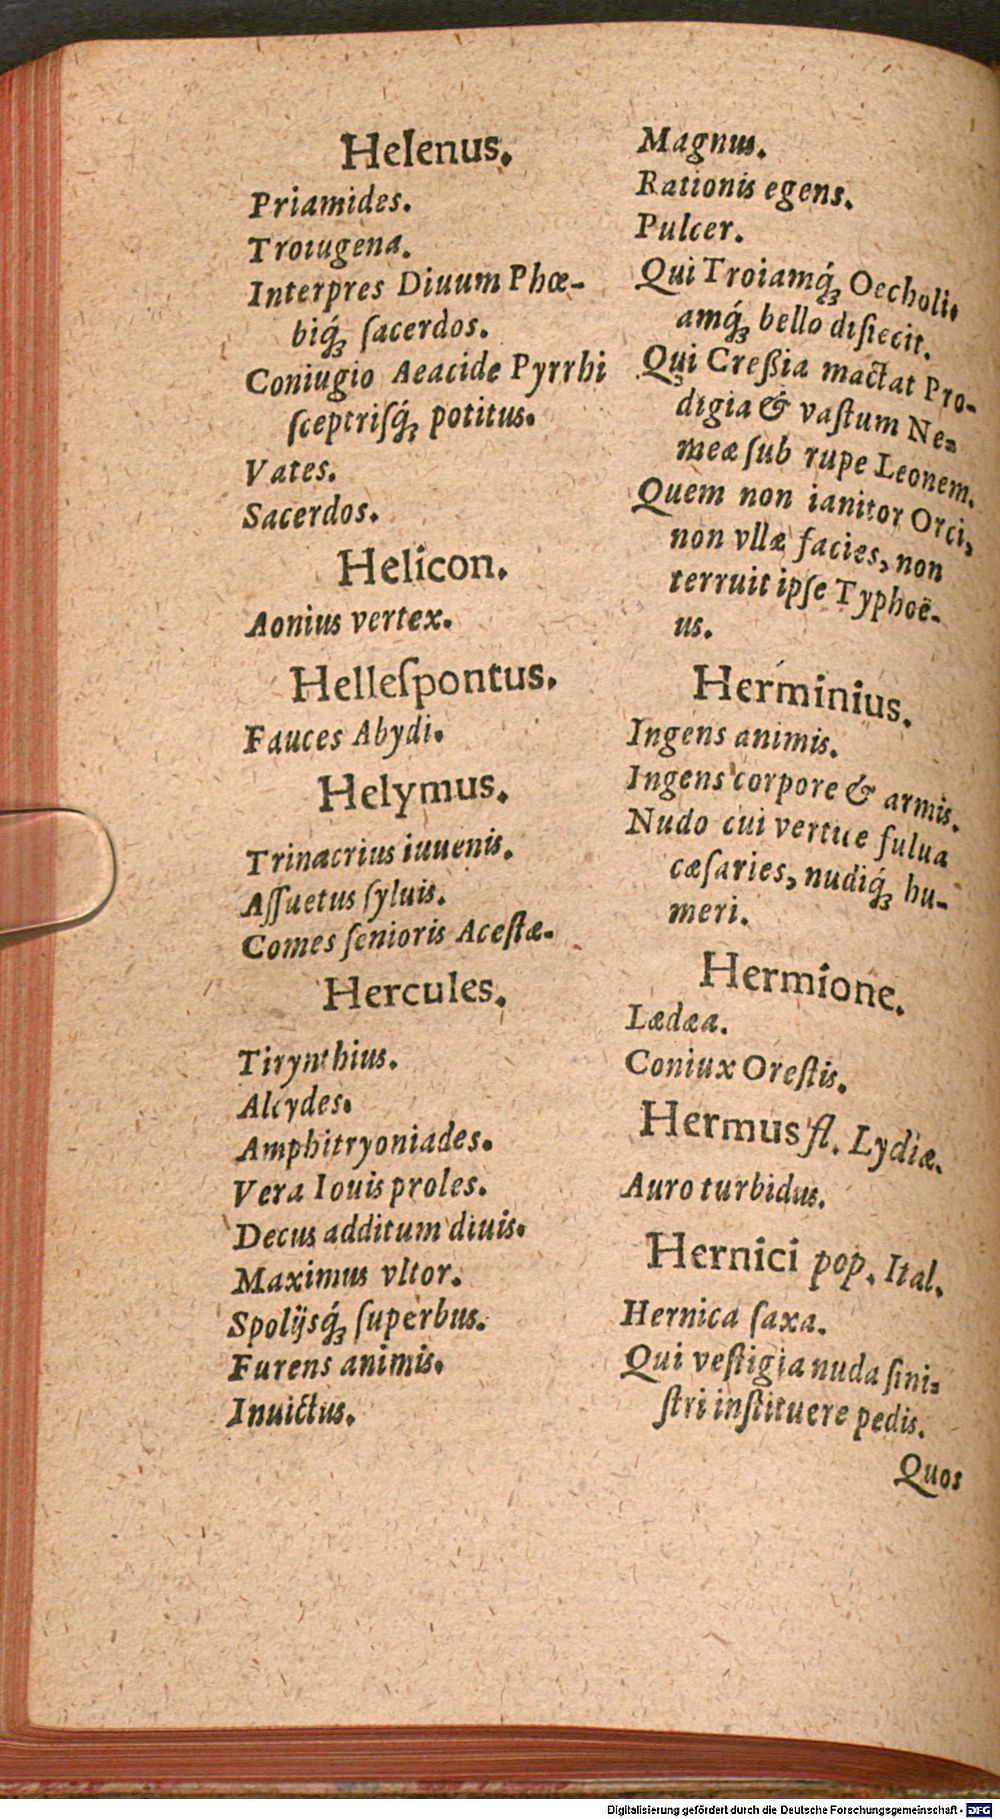 Helenus.
Priamides.
Troiugena.
Interpres Diuum Phœ-
biq́ꝫ ſacerdos.
Coniugio Aeacide Pyrrhi
ſceptriſq́ꝫ potitus.
Vates.
Sacerdos.
Helicon.
Aonius vertex.
Helleſpontus.
Fauces Abydi.
Helymus.
Trinacrius iuuenis.
Aſſuetus ſyluis.
Comes ſenioris Aceſtæ.
Hercules.
Tirynthius.
Alcydes.
Amphitryoniades.
Vera Iouis proles.
Decus additum diuis.
Maximus vltor.
Spolijsq́ꝫ ſuperbus.
Furens animis.
Inuictus.
Magnus.
Rationis egens.
Pulcer.
Qui Troiamq́ꝫ Oecholi-
amq́ꝫ bello diſiecit.
Qui Creßia mactat Pro-
digia & vaſtum Ne-
meæ ſub rupe Leonem.
Quem non ianitor Orci,
non vllæ facies, non
terruit ipſe Typhoë-
us.
Herminius.
Ingens animis.
Ingens corpore & armis.
Nudo cui vertue fulua
cæſaries, nudiq́ꝫ hu-
meri.
Hermione.
Lædæa.
Coniux Oreſtis.
Hermus fl. Lydiæ.
Auro turbidus.
Hernici pop. Ital.
Hernica ſaxa.
Qui veſtigia nuda ſini-
ſtri inſtituere pedis.
Quos
Digitalisierung gefördert durch die Deutsche Forschungsgemeinschaft - DFG